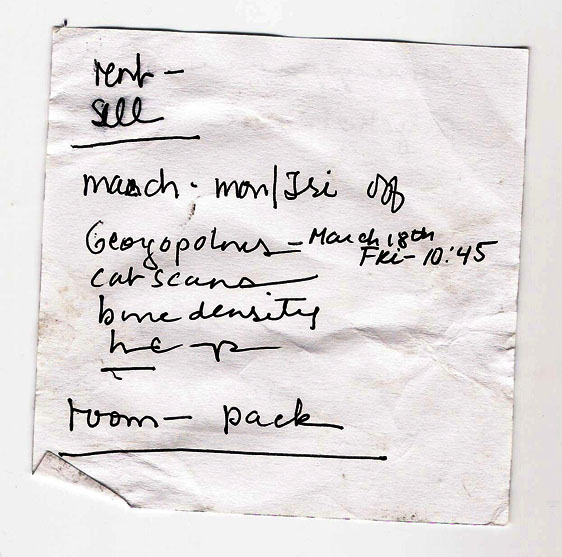 rent -
sell
march - mon/Fri off
Georgopolous - March 18th
Fri - 10:45
cat scans
bone density
room - pack